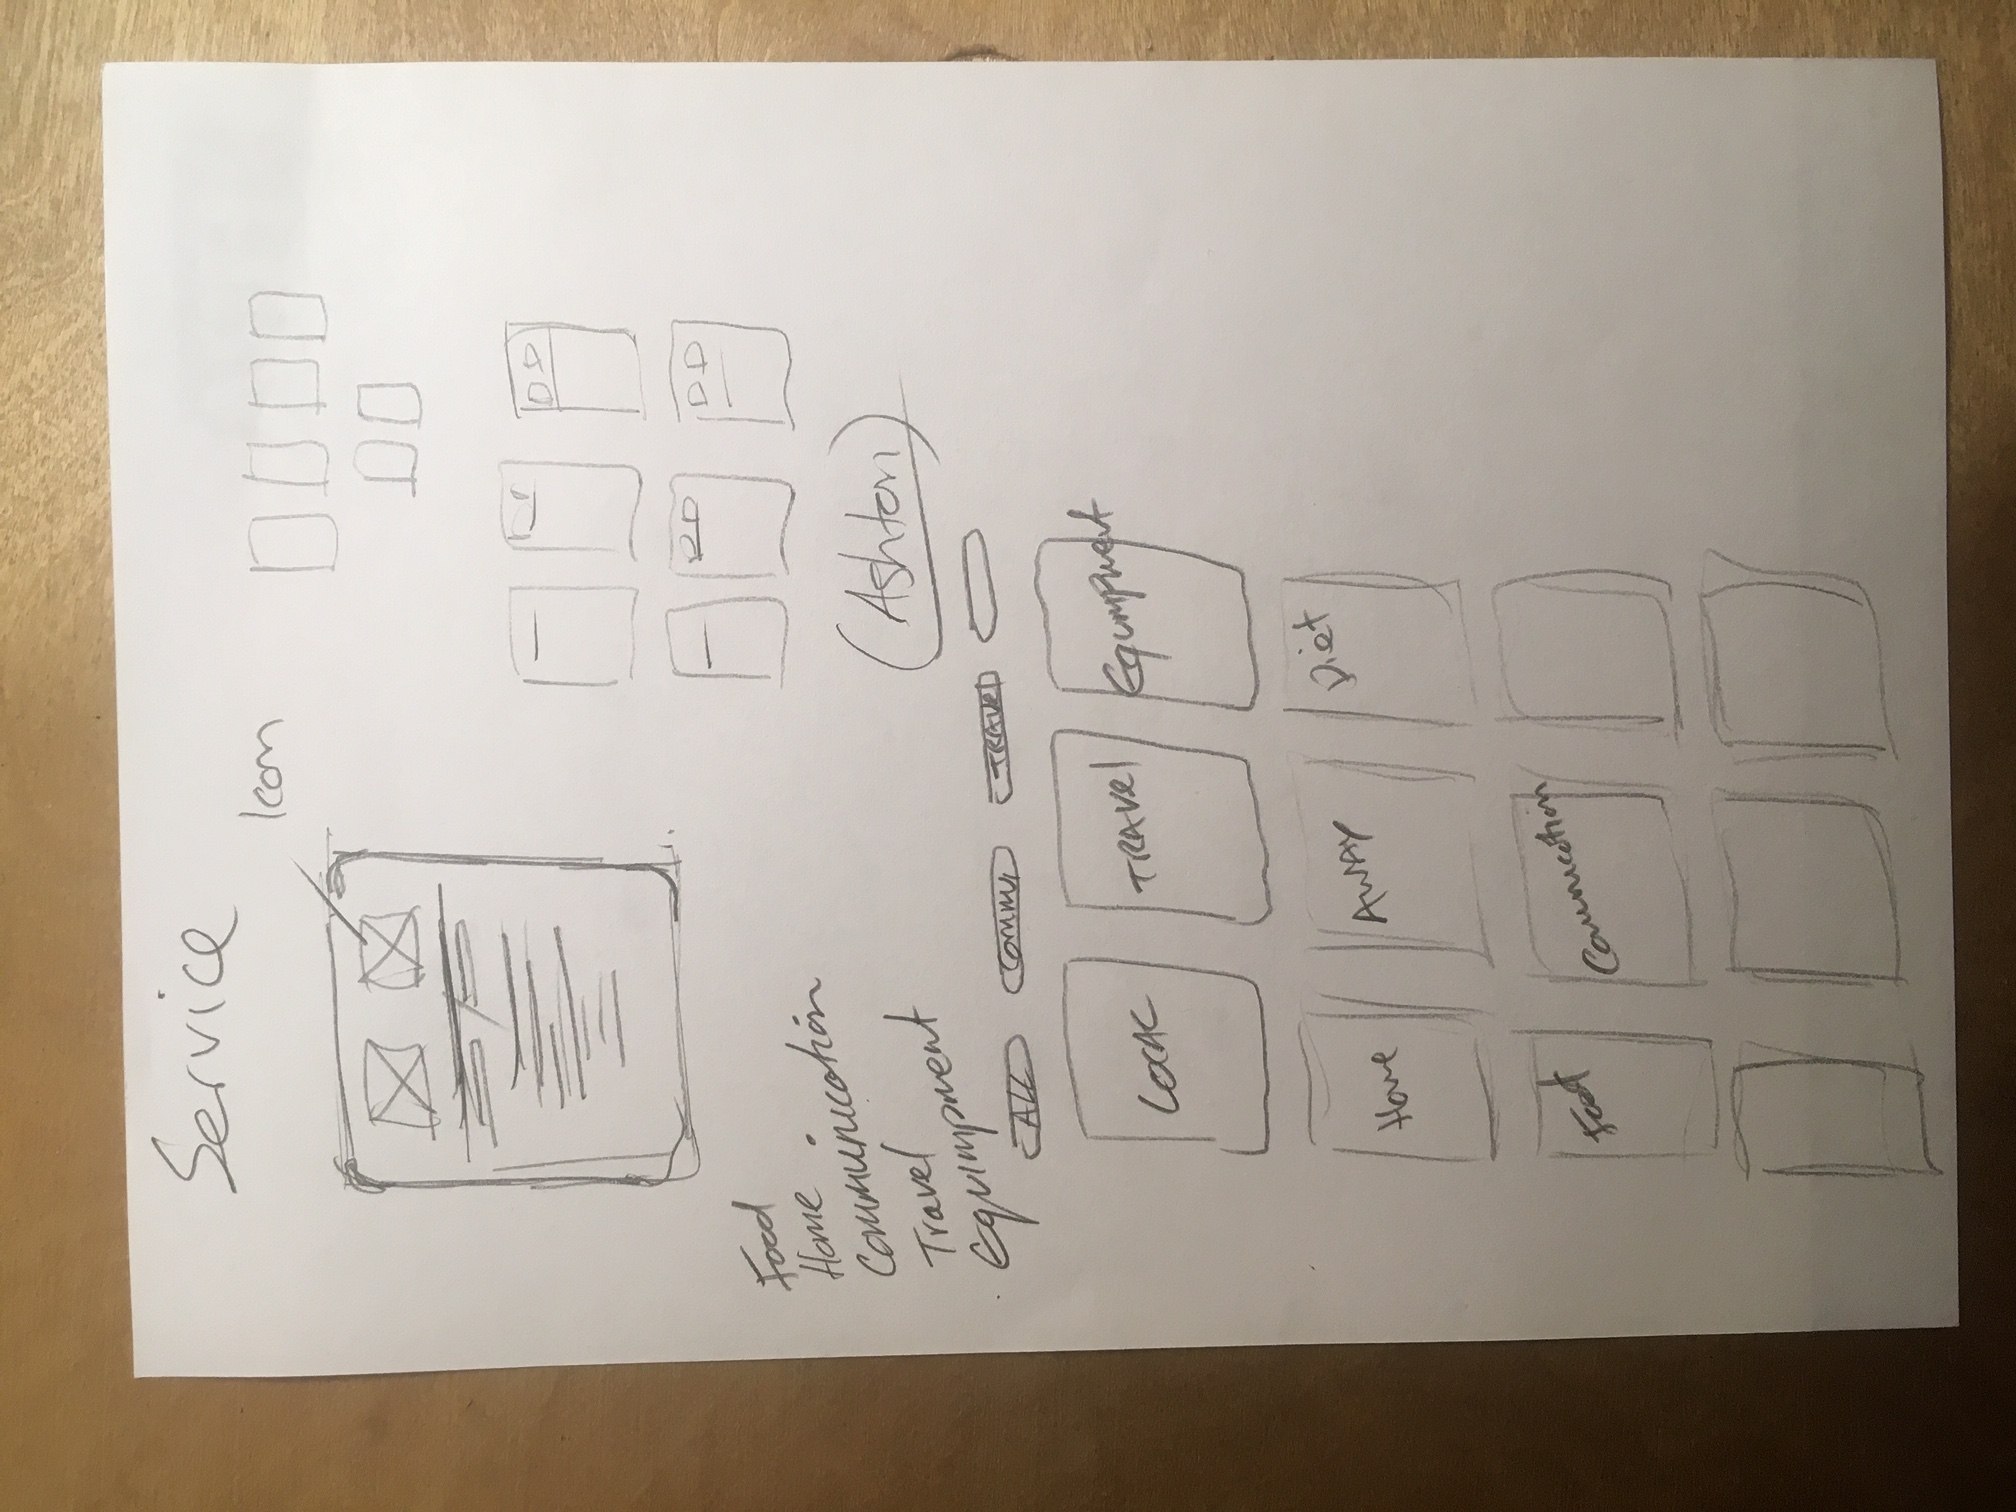 Service
Icon
Food
Home
Communication
Travel
Equimpment
(Ashton)
ALL COMMU TRAVEL
LOCAL TRAVEL Equimpment
Home AWAY Diet
Food Comunication